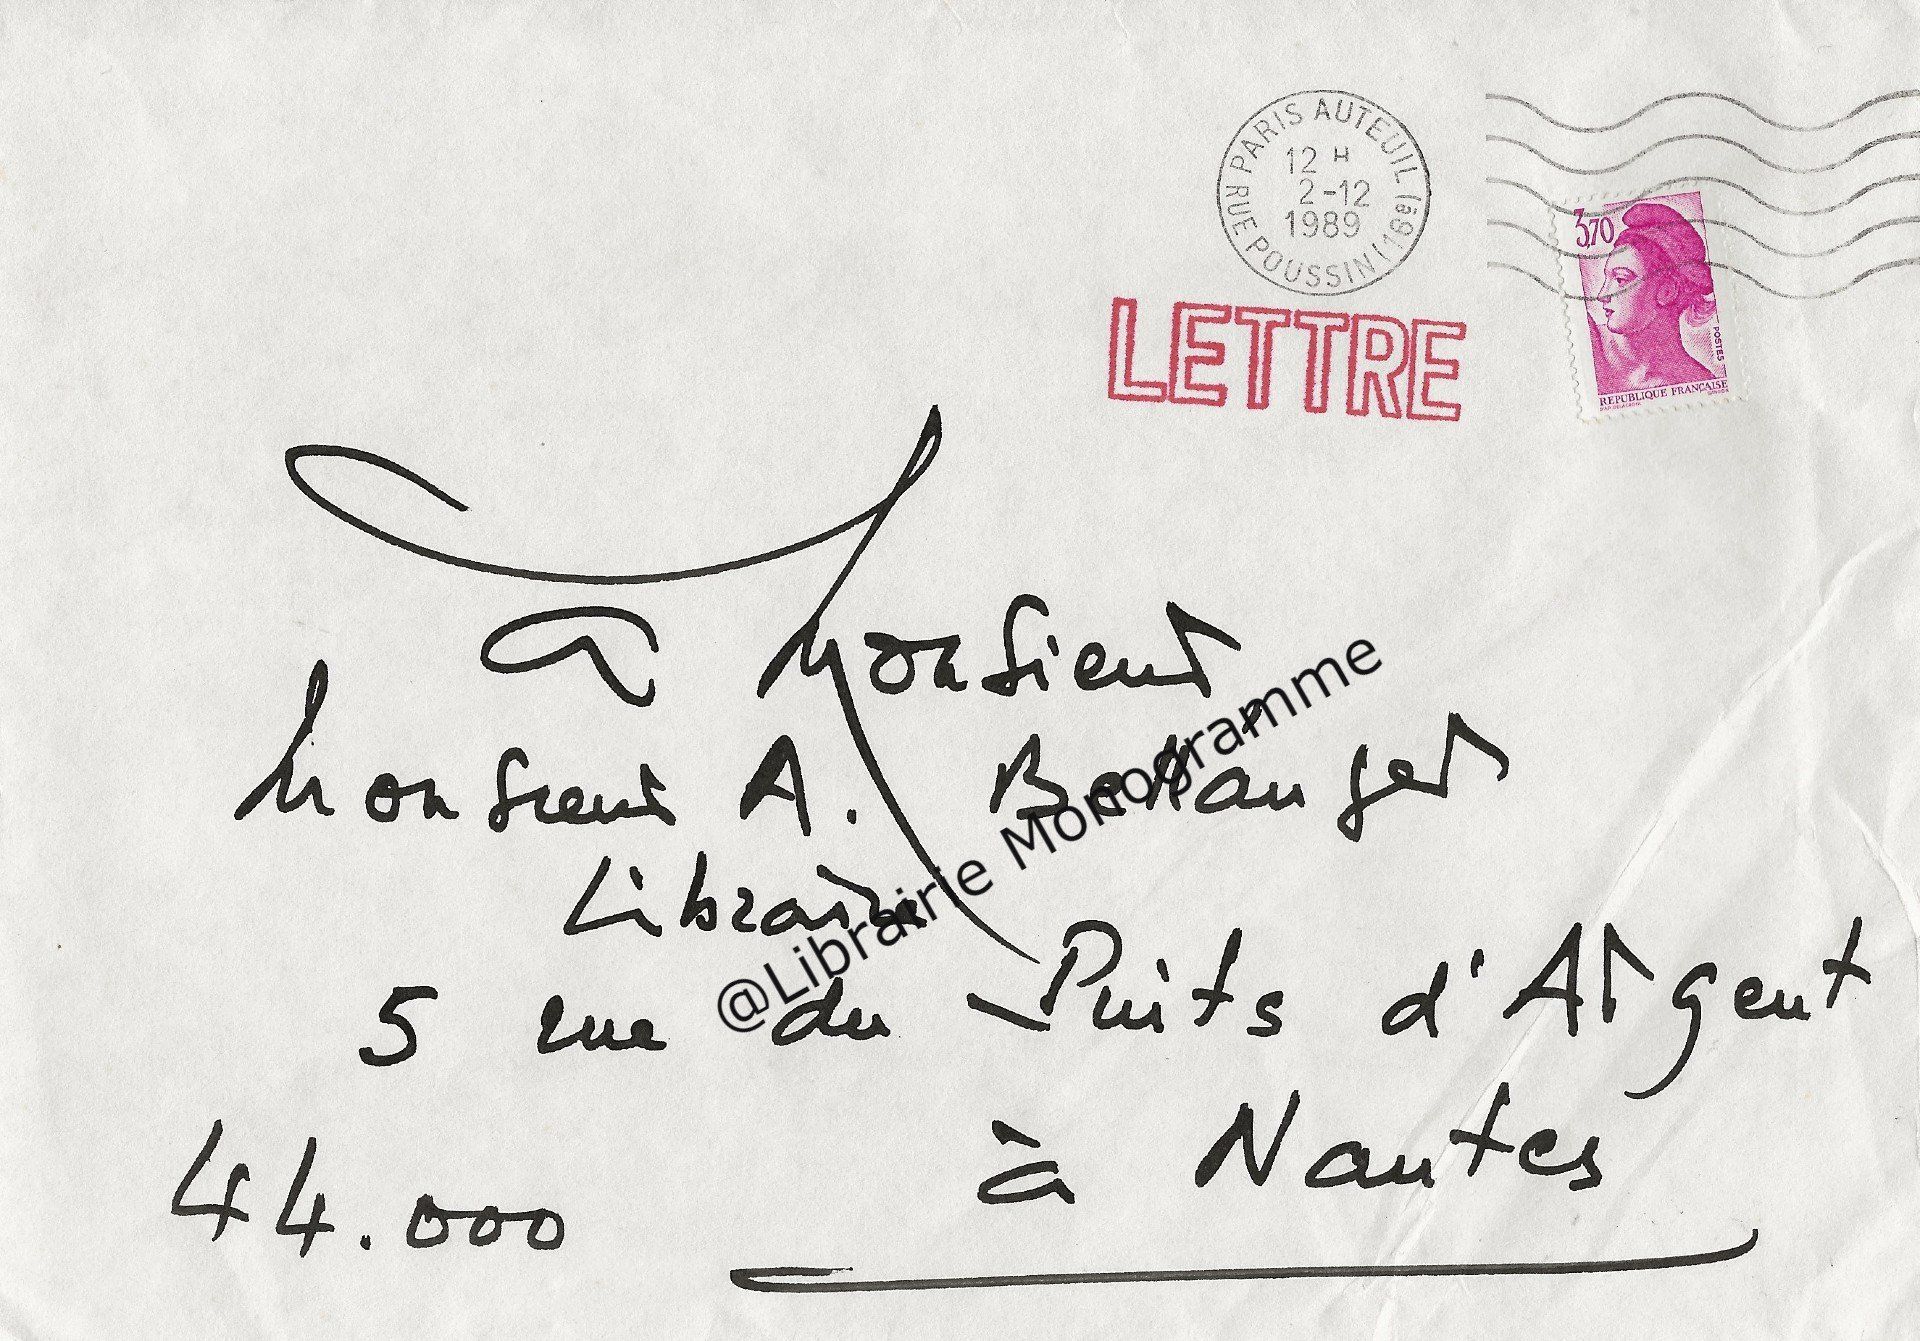 RUE POUSSIN (16è) PARIS AUTEUIL
12 H
2-12
1989
3,70
POSTES
REPUBLIQUE FRANÇAISE
LETTRE
à Monsieur
Monsieur A. Bellanger
Libraire
5 rue du Puits d'Argent
44.000 à Nantes
@Librairie Monogramme